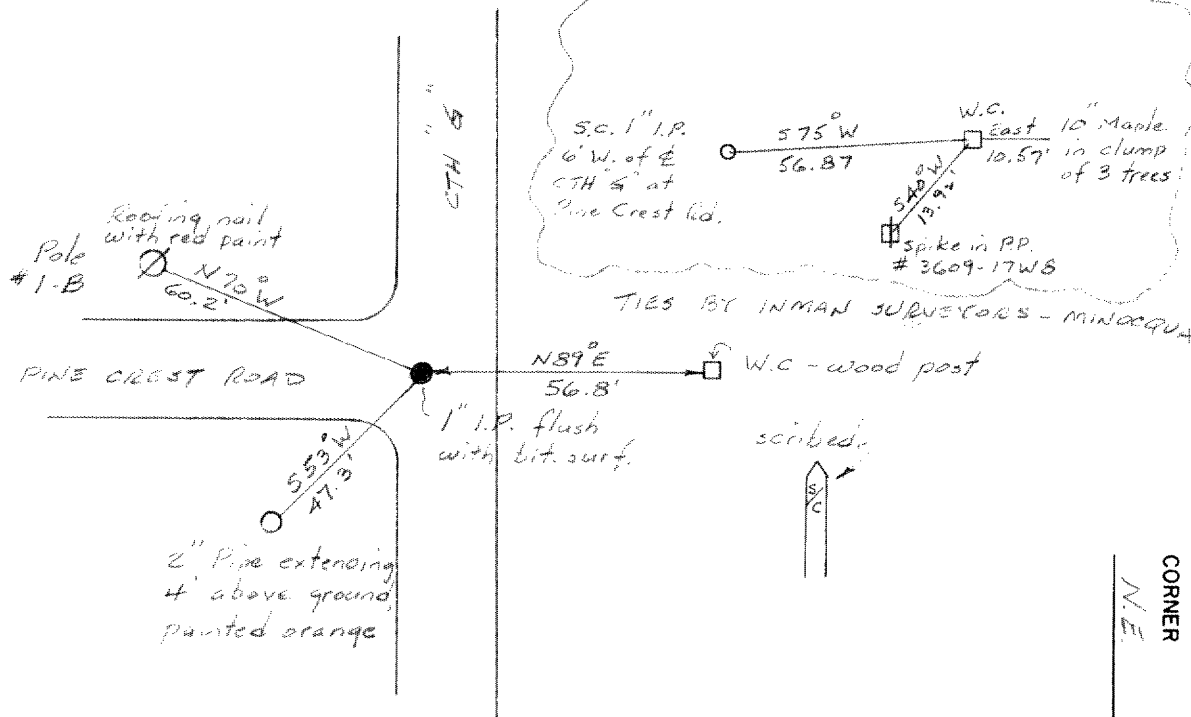 CTH "G"
S.C. 1" I.P.
6' W. of ℄
CTH "G" at
Pine Crest Rd.
S75°W
56.87
W.C.
East
10.57'
10" Maple
in clump
of 3 trees
S40°W
13.92'
spike in P.P.
# 3609-17W8
TIES BY INMAN SURVEYORS - MINOCQUA
Roofing nail
with red paint
Pole
#1-B
N70°W
60.2'
PINE CREST ROAD
N89°E
56.8'
W.C - wood post
1" I.P. flush
with bit. surf.
scribed
S/C
S53°W
47.3'
2" Pipe extending
4' above ground,
painted orange
CORNER
N.E.